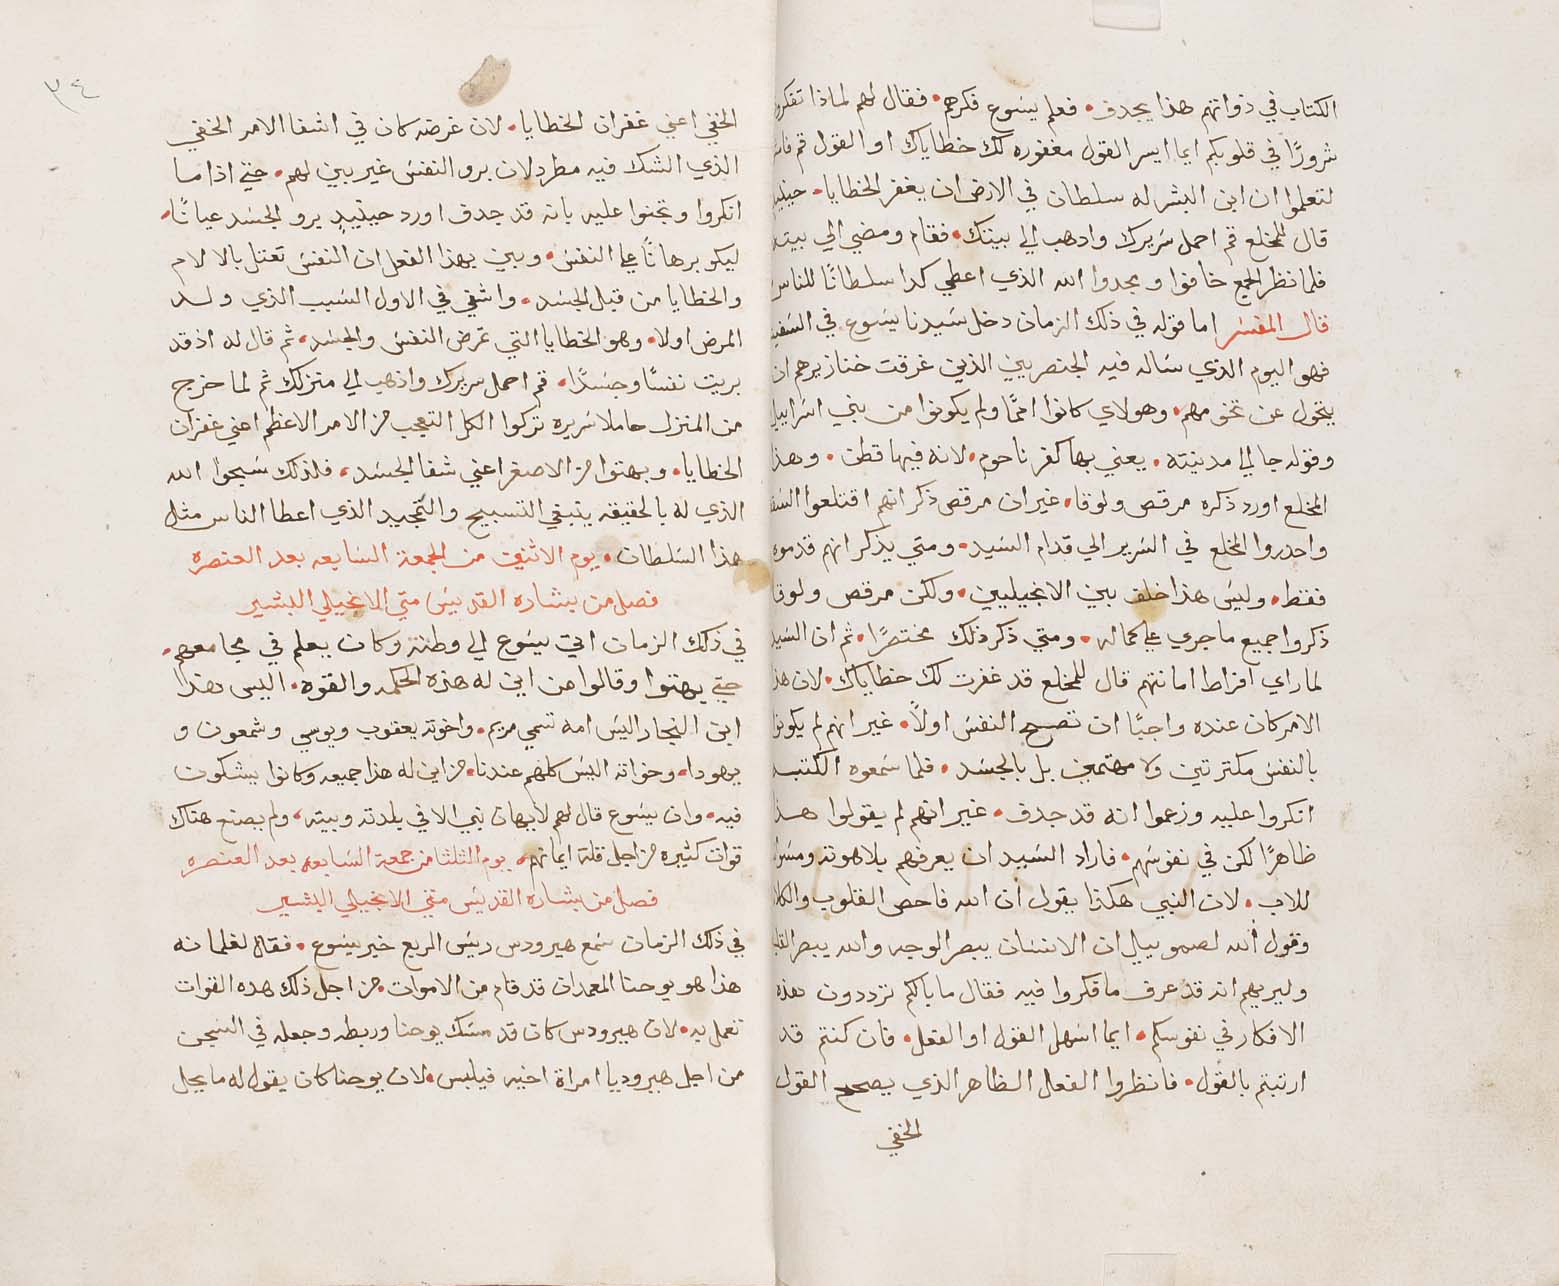 الكتاب في ذواتهم هذا يجدف • فعلم يسوع فكرهم • فقال لهم لماذا تفكروا
شرورًا في قلوبكم ايما ايسر القول مغفوره لك خطاياك او القول قم فامش
لتعلموا ان ابن البشر له سلطان في الارض ان يغفر الخطايا • حينيذ
قال للمخلع قم احمل سريرك وادهب الي بيتك • فقام ومضي الي بيته
فلما نظر الجمع خافوا ومجدوا الله الذي اعطي كدا سلطانًا للناس
قال المفسر اما قوله في ذلك الزمان دخل سيدنا يسوع في السفينه
فهو اليوم الذي ساله فيه الجنصريين الذين غرقت خنازيرهم ان
يتحول عن تخومهم • وهولاي كانوا اممًا ولم يكونوا من بني اسراييل
وقوله جا الي مدينته • يعني بها كفرناحوم • لانه فيها قطن • وهذا
المخلع اورد ذكره مرقص ولوقا • غير ان مرقص ذكر انهم اقتلعوا السقف
واحدروا المخلع في السرير الي قدام السيد • ومتي يذكر انهم قدموه
فقط • وليس هذا خلف بين الانجيليين • ولكن مرقص ولوقا
ذكروا جميع ما جري علي كماله • ومتي ذكر ذلك مختصرًا • ثم ان السيد
لما راي افراط امانتهم قال للمخلع قد غفرت لك خطاياك • لان هذا
الامر كان عنده واجبًا ان تصح النفس اولاً • غير انهم لم يكونوا
بالنفس مكترتين ولا مهتمين بل بالجسد • فلما سمعوه الكتبه
انكروا عليه وزعموا انه قد جدف • غير انهم لم يقولوا هذا
ظاهرًا لكن في نفوسهم • فاراد السيد ان يعرفهم بلاهوته ومسراته
للاب • لان النبي هكذا يقول ان الله فاحص القلوب والكلا
وقول الله لصموييل ان الانسان يبصر الوجه والله يبصر القلب
وليريهم انه قد عرف ما فكروا فيه فقال ما بالكم ترددون هذه
الافكار في نفوسكم • ايما اسهل القول او الفعل • فان كنتم قد
ارتبتم بالقول • فانظروا الفعل الظاهر الذي يصحح القول
الخفي
٣٤
الخفي اعني غفران الخطايا • لان غرضه كان في اشفا الامر الخفي
الذي الشك فيه مطرد لان برو النفس غير بين لهم • حتي اذا ما
انكروا وتجنوا عليه بانه قد جدف اورد حينيذ برو الجسد عيانًا •
ليكو برهانًا علي النفس • وبين بهذا الفعل ان النفس تعتل بالالام
والخطايا من قبل الجسد • واشفي في الاول السبب الذي ولد
المرض اولا • وهو الخطايا التي تمرض النفس والجسد • ثم قال له اذ قد
بريت نفسًا وجسدًا • قم احمل سريرك واذهب الي منزلك ثم لما خرج
من المنزل حاملا سريره تركوا الكل التعجب من الامر الاعظم اعني غفران
الخطايا • وبهتوا من الاصغر اعني شفا الجسد • فلذلك سبحوا الله
الذي له بالحقيقه ينبغي التسبيح والتمجيد الذي اعطا الناس مثل
هذا السلطان • يوم الاثنين من الجمعة السابعه بعد العنصره
فصل من بشاره القديس متي الانجيلي البشير
في ذلك الزمان اتي يسوع الي وطنه وكان يعلم في مجامعهم •
حتي يهتوا وقالوا من اين له هذه الحكمه والقوه • اليس هذا
ابن النجار اليس امه تسمي مريم • واخوته يعقوب ويوسي وشمعون و
يهودا • وخواته اليس كلهم عندنا • من اين له هذا جميعه وكانوا يشكون
فيه • وان يسوع قال لهم لا يهان نبي الا في بلدته وبيته • ولم يصنع هناك
قوات كثيره من اجل قلة ايمانهم • يوم الثلثا من جمعة السابعه بعد العنصره
فصل من بشاره القديس متي الانجيلي البشير
في ذلك الزمان سمع هيرودس ريس الربع خبر يسوع • فقال لغلمانه
هذا هو يوحنا المعمدان قد قام من الاموات • من اجل ذلك هده القوات
تعمل به • لان هيرودس كان قد مسك يوحنا وربطه وجعله في السجن
من اجل هيروديا امراة اخيه فيلبس • لان يوحنا كان يقول له ما يحل